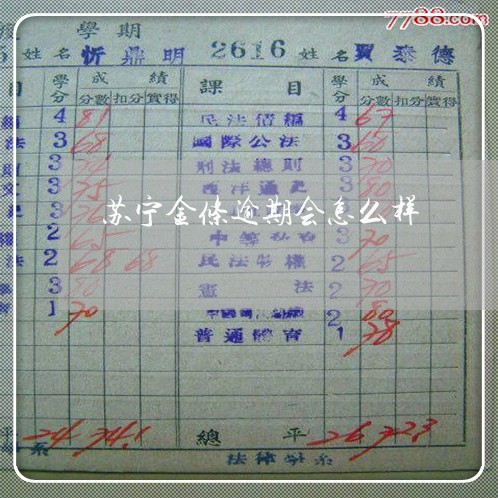 7788.com
學期
姓名 忻鼎明 2616 姓名 賈泰德
目 學分 成績 課目 學分 成績
分數 扣分 實得 分數 扣分 實得
4 81 民法債編 4 67
法 3 68 國際公法 3 60
3 刑法總則 3 70
3 75 西洋通史 3 80
3
2 65 3 70
法 2 68 68 民法物權 2 65
3 80 憲法 2 70
1 70 2 80
普通體育 1 78
苏宁金條逾期会怎么样
平 24 74.1 總平 26 72.3
系 法律學系